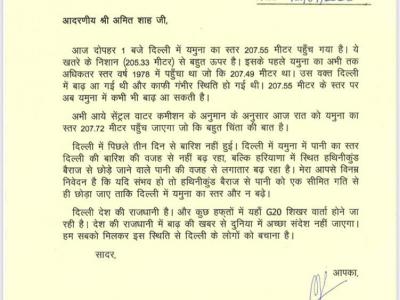 आदरणीय श्री अमित शाह जी,
आज दोपहर 1 बजे दिल्ली में यमुना का स्तर 207.55 मीटर पहुँच गया है। ये
खतरे के निशान (205.33 मीटर) से बहुत ऊपर है। इसके पहले यमुना का अभी तक
अधिकतर स्तर वर्ष 1978 में पहुँचा था जो कि 207.49 मीटर था। उस वक्त दिल्ली
में बाढ़ आ गई थी और काफी गंभीर स्थिति हो गई थी। 207.55 मीटर के स्तर पर
अब यमुना में कभी भी बाढ़ आ सकती है।
अभी आये सेंट्रल वाटर कमीशन के अनुमान के अनुसार आज रात को यमुना का
स्तर 207.72 मीटर पहुँच जाएगा जो कि बहुत चिंता की बात है।
दिल्ली में पिछले तीन दिन से बारिश नहीं हुई। दिल्ली में यमुना में पानी का स्तर
दिल्ली की बारिश की वजह से नहीं बढ़ रहा, बल्कि हरियाणा में स्थित हथिनीकुंड
बैराज से छोड़े जाने वाले पानी की वजह से लगातार बढ़ रहा है। मेरा आपसे विनम्र
निवेदन है कि यदि संभव हो तो हथिनीकुंड बैराज से पानी को एक सीमित गति से
ही छोड़ा जाए ताकि दिल्ली में यमुना का स्तर और न बढ़े।
दिल्ली देश की राजधानी है। और कुछ हफ्तों में यहाँ G20 शिखर वार्ता होने जा
रही है। देश की राजधानी में बाढ़ की खबर से दुनिया में अच्छा संदेश नहीं जाएगा।
हम सबको मिलकर इस स्थिति से दिल्ली के लोगों को बचाना है।
सादर,
आपका,